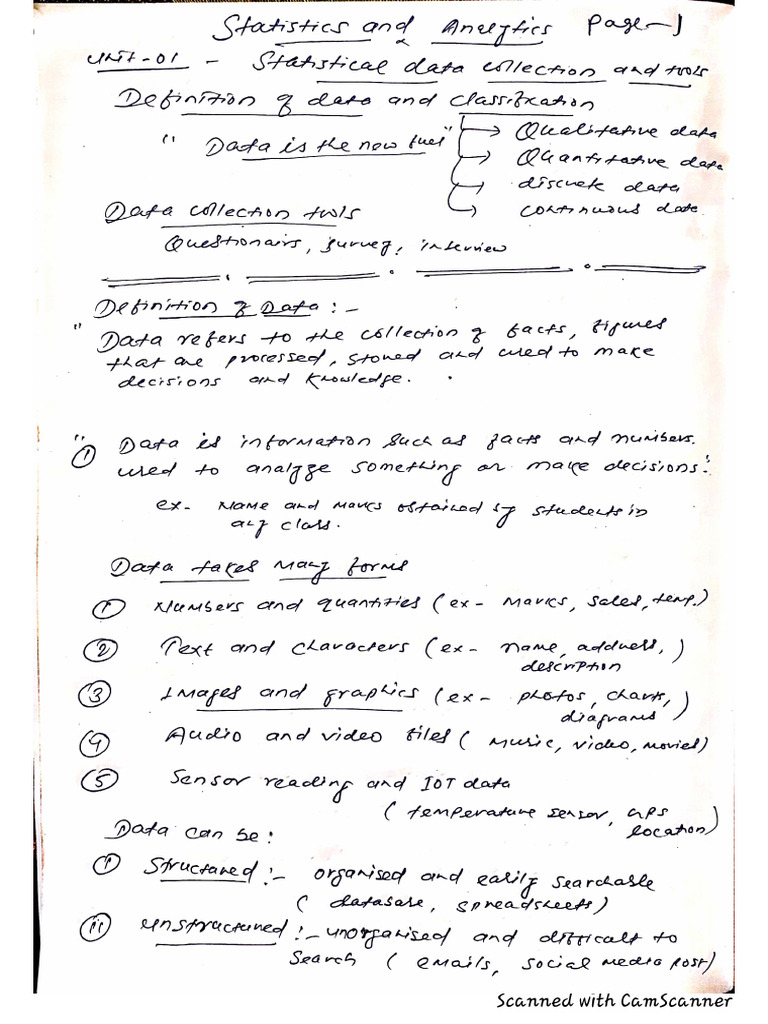 Statistics and Analytics Page-1
UNIT-01 - Statistical data collection and tools
Definition of data and classification
"Data is the new fuel"
Qualitative data
Quantitative data
discrete data
continuous data
Data collection tools
Questionairs, survey, interview
Definition of Data :-
"Data refers to the collection of facts, figures
that are processed, stored and used to make
decisions and knowledge.
" ① Data is information such as facts and numbers.
used to analyze something or make decisions."
ex- Name and Marks obtained by students in
any class.
Data takes Many forms
① Numbers and quantities (ex- Marks, sales, temp.)
② Text and characters (ex- name, address,
description)
③ Images and graphics (ex- photos, charts,
diagrams)
④ Audio and video files ( music, video, movies)
⑤ Sensor reading and IOT data
( temperature sensor, GPS
location)
Data can be:
① Structured :- organised and easily searchable
( database, spreadsheets)
ii Unstructured :- unorganised and difficult to
search ( emails, social media post)
Scanned with CamScanner